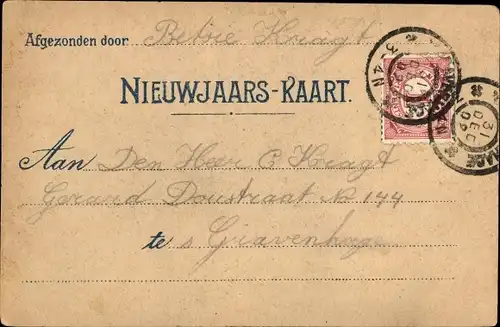 Afgezonden door Betsie Kragt
NIEUWJAARS-KAART.
Aan Den Heer C Kragt
Gerard Doustraat No 144
te s Gravenhage
31
DEC